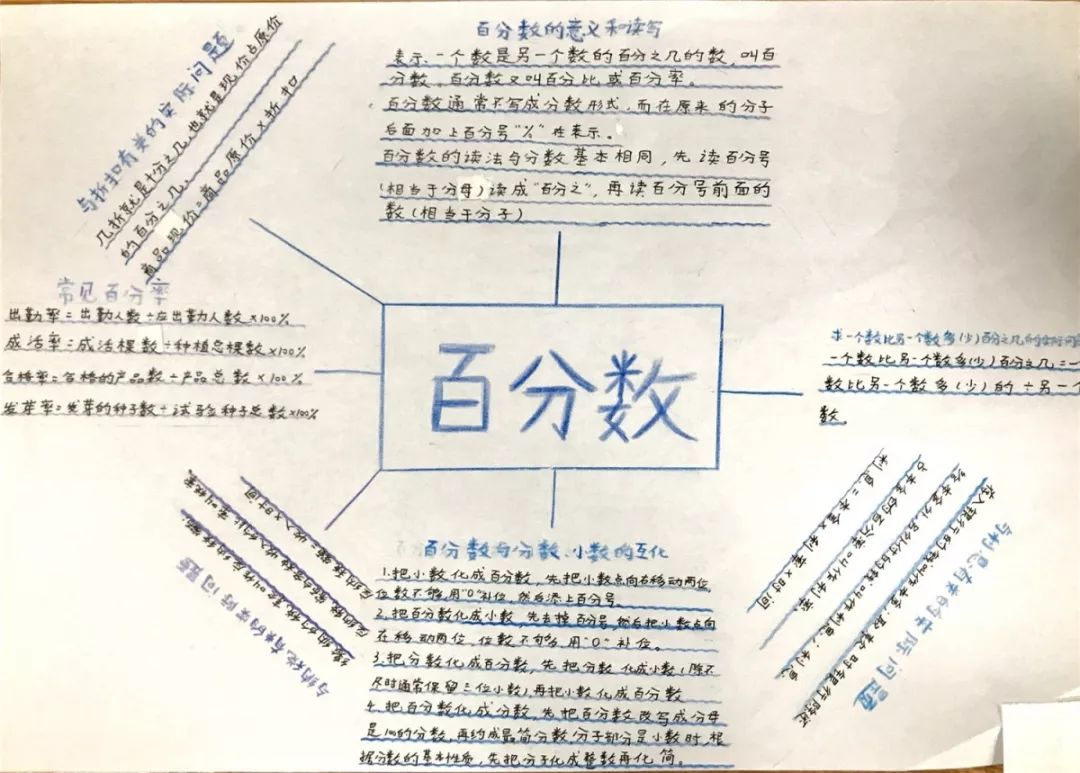 百分数的意义和读写
表示一个数是另一个数的百分之几的数,叫百
分数。百分数又叫百分比或百分率。
百分数通常不写成分数形式,而在原来的分子
后面加上百分号"%"来表示。
百分数的读法与分数基本相同,先读百分号
(相当于分母)读成"百分之",再读百分号前面的
数(相当于分子)
与折扣有关的实际问题
几折就是十分之几,也就是现价占原价
的百分之几,
商品现价=商品原价×折扣
常见百分率
出勤率=出勤人数÷应出勤人数×100%
成活率=成活棵数÷种植总棵数×100%
合格率=合格的产品数÷产品总数×100%
发芽率=发芽的种子数÷试验种子总数×100%
百分数
求一个数比另一个数多(少)百分之几的实际问题
一个数比另一个数多(少)百分之几=一个
数比另一个数多(少)的÷另一个
数
与纳税有关的实际问题
百分数与分数、小数的互化
1.把小数化成百分数,先把小数点向右移动两位,
位数不够,用"0"补位,然后添上百分号。
2.把百分数化成小数,先去掉百分号,然后把小数点向
左移动两位,位数不够,用"0"补位。
3.把分数化成百分数,先把分数化成小数(除不
尽时通常保留三位小数),再把小数化成百分数
4.把百分数化成分数,先把百分数改写成分母
是100的分数,再约成最简分数,分子部分是小数时,根
据分数的基本性质,先把分子化成整数再化简。
与利息有关的实际问题
存入银行的钱叫作本金,取款时银行除还
给本金外另外付的钱叫作利息,利息
占本金的百分率叫作利率。
利息=本金×利率×时间